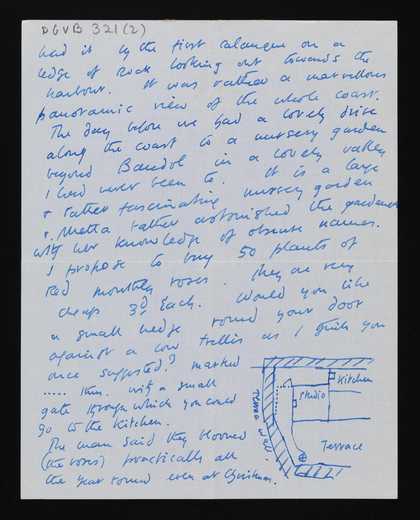 DGVB 321(2)
had it by the first calanque on a
ledge of rock looking out towards the
harbour. It was rather a marvellous
panoramic view of the whole coast.
The day before we had a lovely drive
along the coast to a nursery garden
beyond Bandol in a lovely valley
I had never been to. It is a large
& rather fascinating nursery garden
& rather astonished the gardener
with her knowledge of obscure names.
I propose to buy 50 plants of
Red monthly roses. They are very
cheap 3d Each. Would you like
a small hedge round your door
against a low trellis as I think you
once suggested? marked
..... thus. with a small
gate through which you could
go to the kitchen.
The man said they bloomed
(the roses) practically all
the year round even at Christmas.
Kitchen
Studio
Terrace
Wall